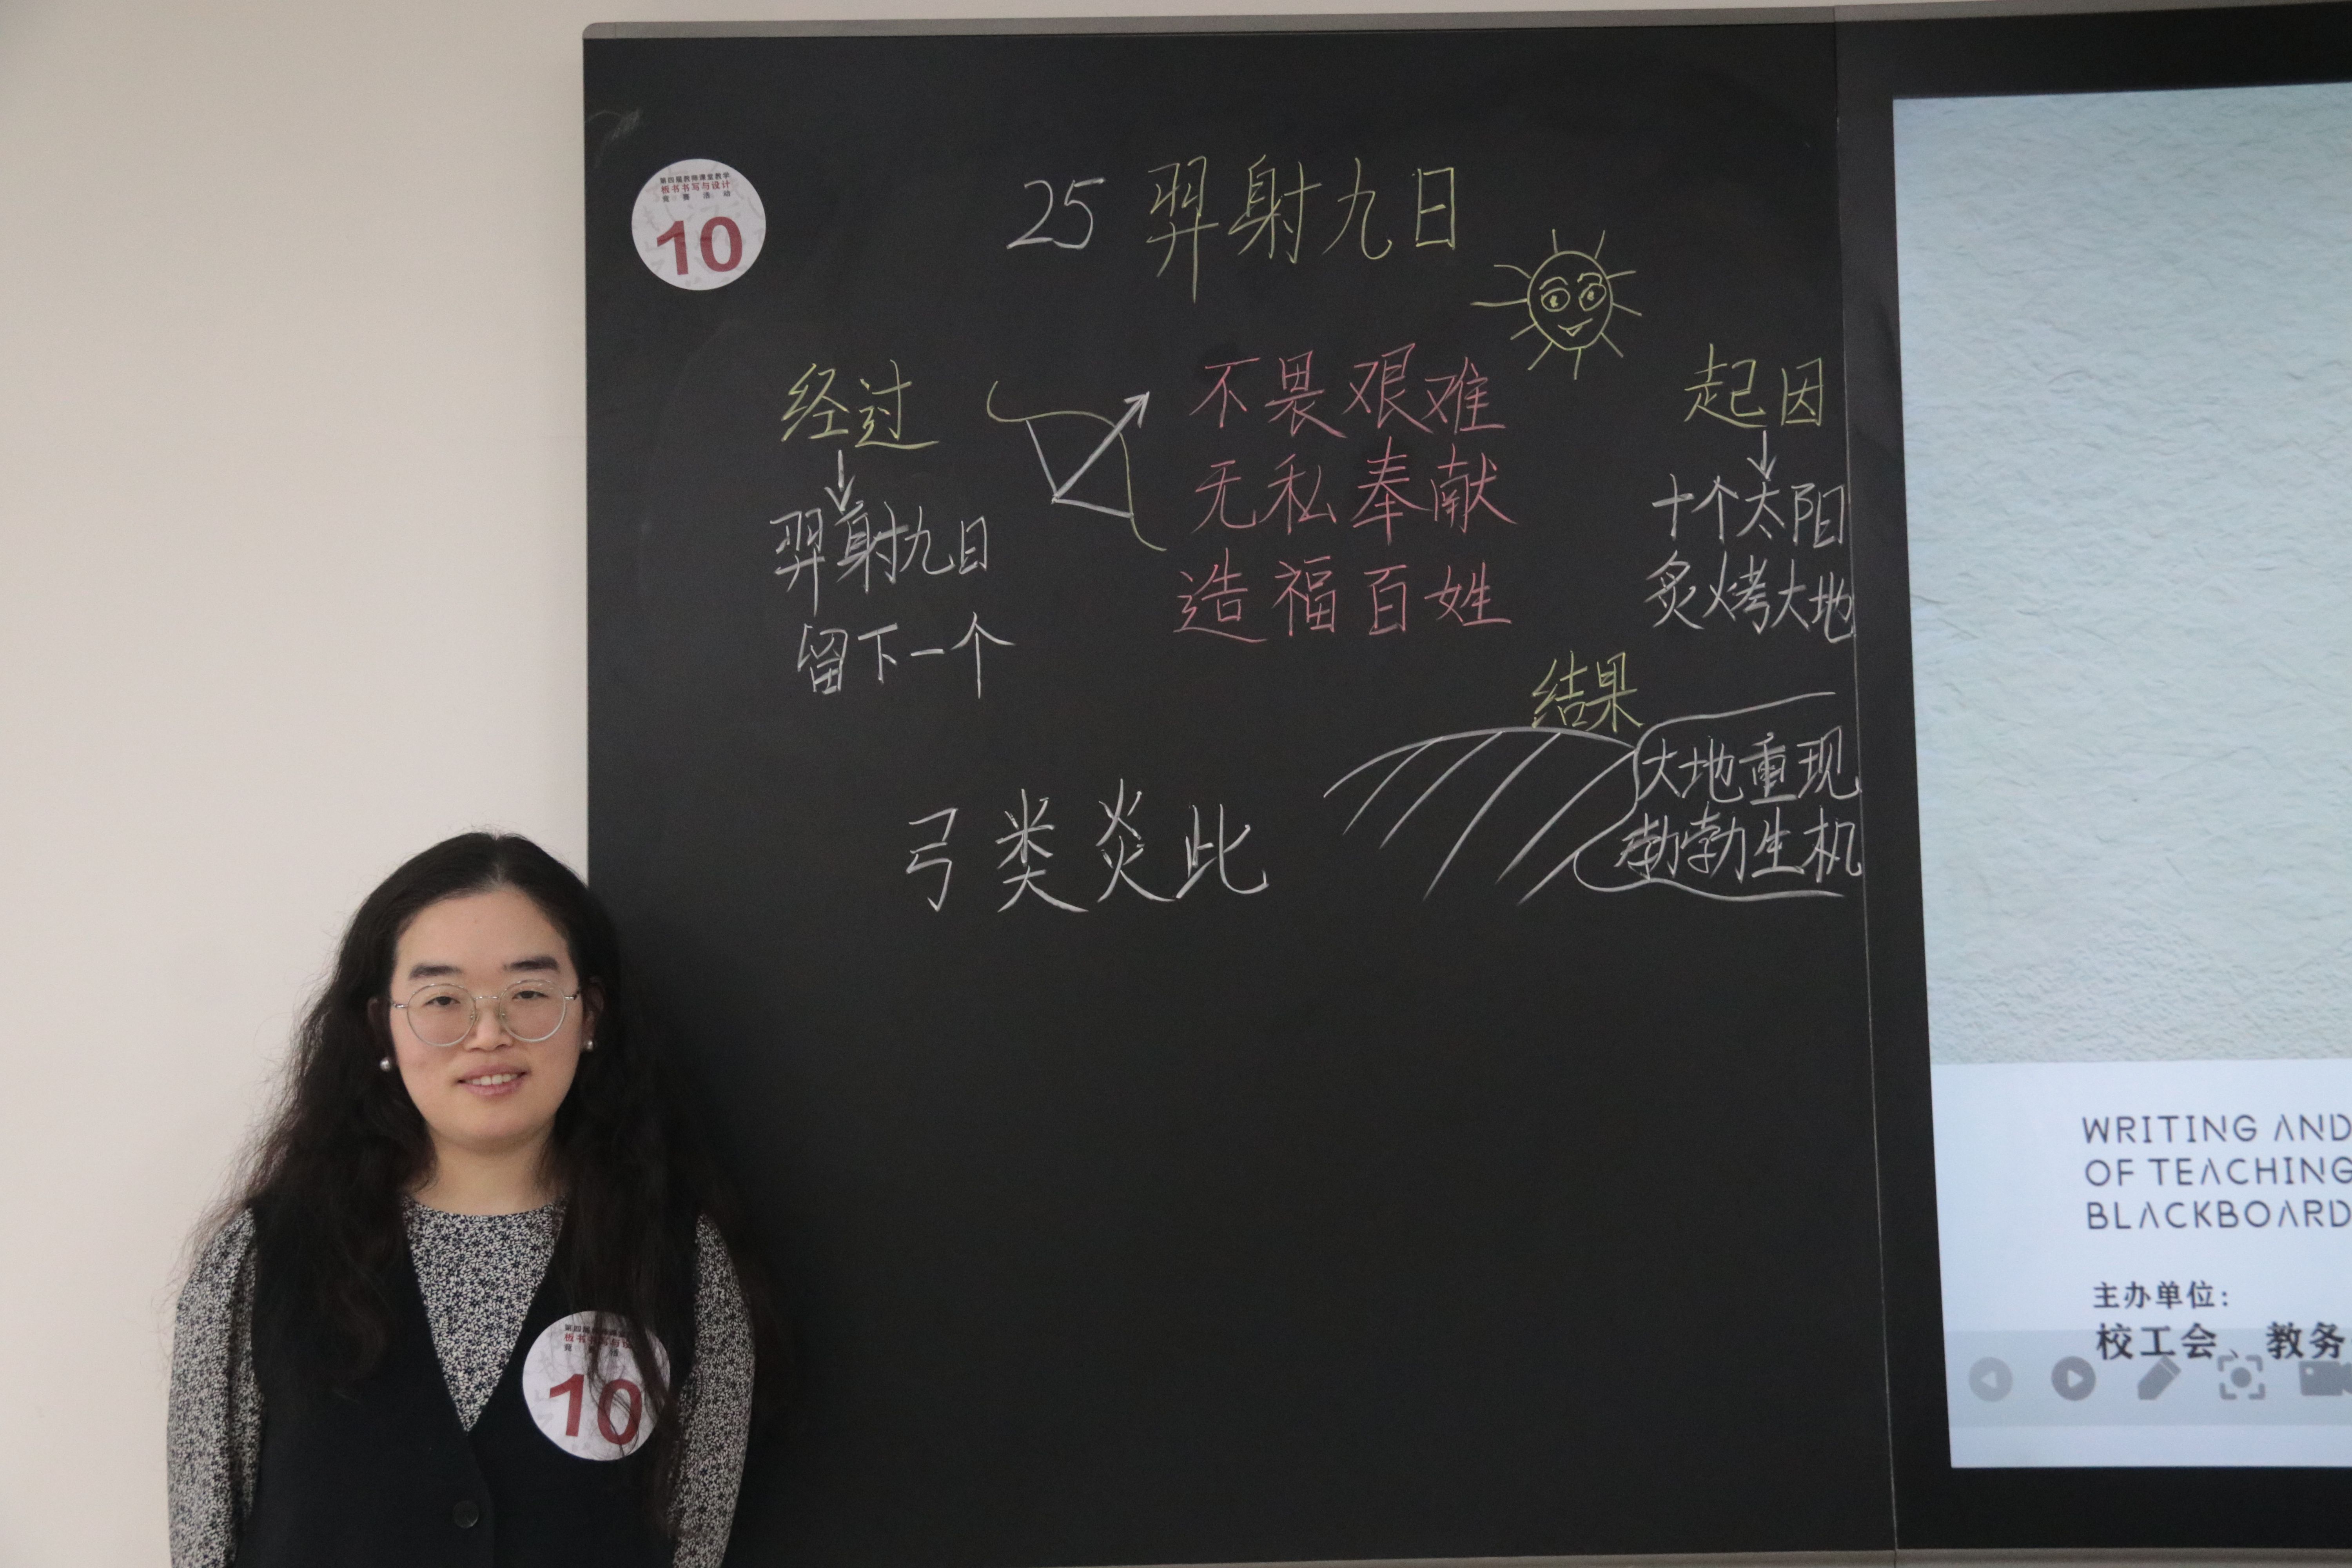 第四届教师课堂教学
板书书写与设计
竞赛活动
10
25 羿射九日
经过
羿射九日
留下一个
不畏艰难
无私奉献
造福百姓
起因
十个太阳
炙烤大地
结果
大地重现
勃勃生机
弓类炎此
10
WRITING AND
OF TEACHING
BLACKBOARD
主办单位:
校工会、教务